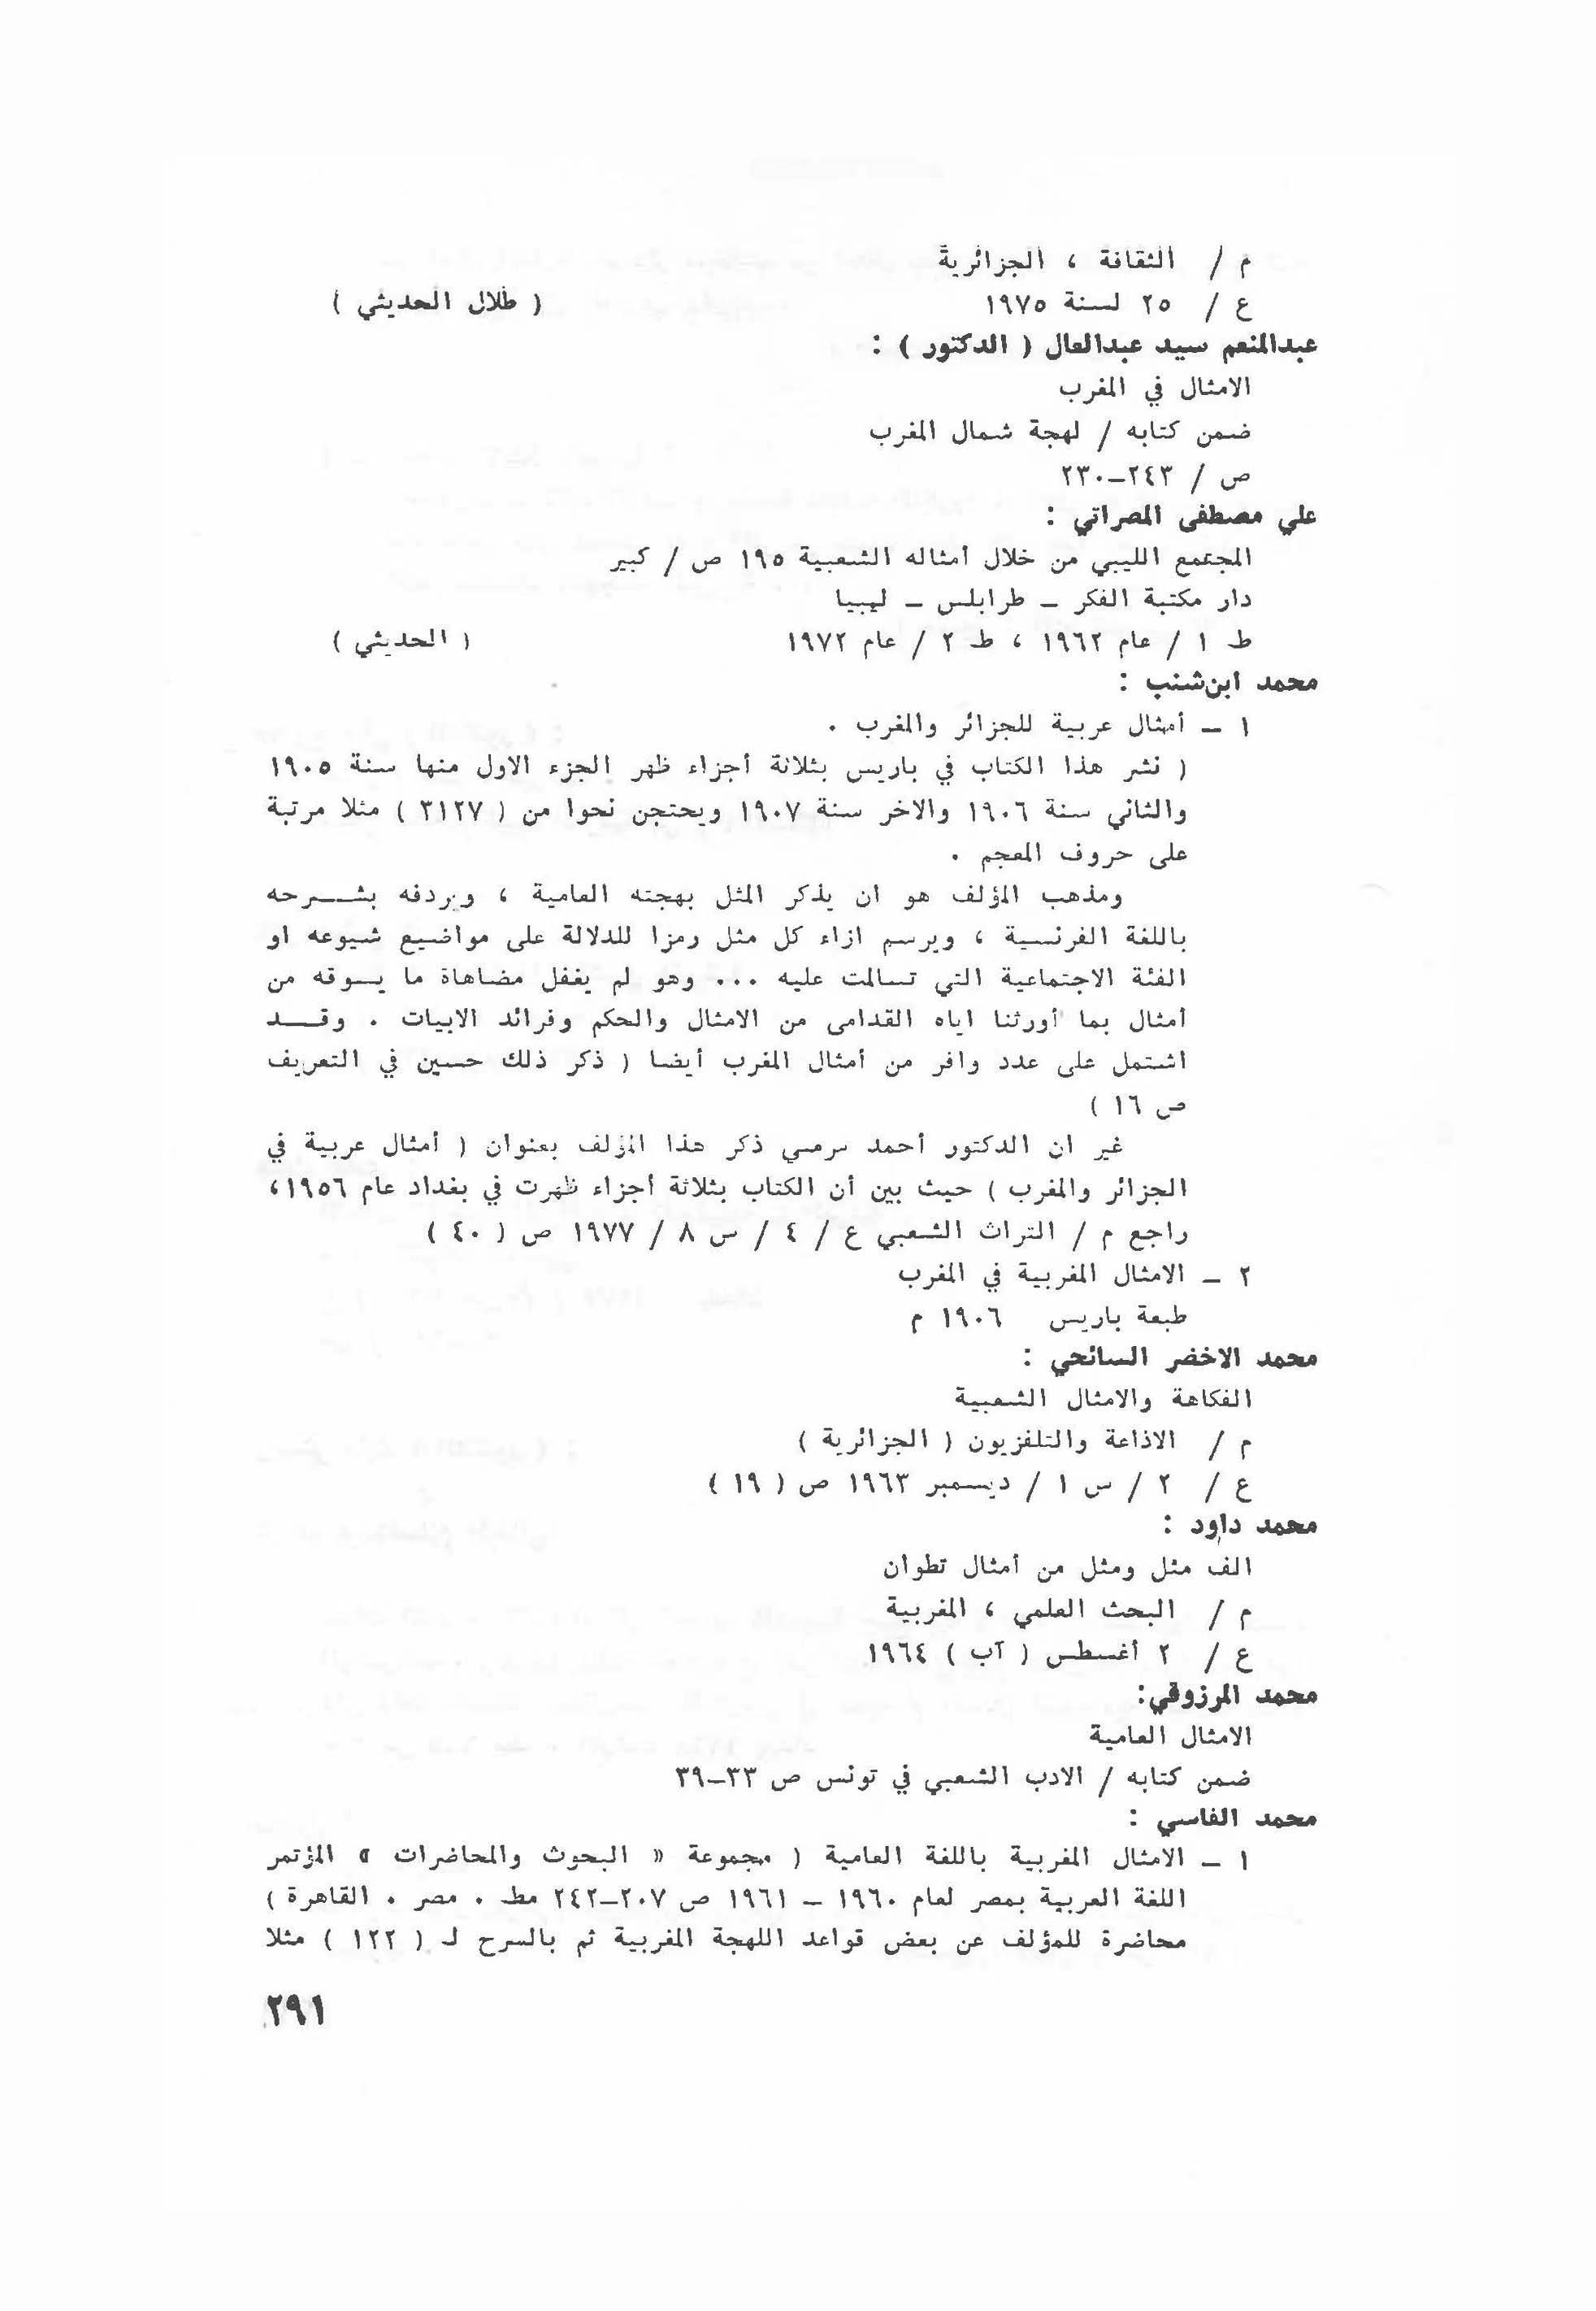 م / الثقافة ، الجزائرية
ع / ٢٥ لسنة ١٩٧٥ ( طلال الحديثي )
عبدالمنعم سيد عبدالعال ( الدكتور ) :
الامثال في المغرب
ضمن كتابه / لهجة شمال المغرب
ص / ٢٤٣–٢٣٠
علي مصطفى المصراتي :
المجتمع الليبي من خلال أمثاله الشعبية ١٩٥ ص / كبير
دار مكتبة الفكر – طرابلس – ليبيا
ط ١ / عام ١٩٦٢ ، ط ٢ / عام ١٩٧٢ ( الحديثي )
محمد ابن شنب :
١ – أمثال عربية للجزائر والمغرب .
( نشر هذا الكتاب في باريس بثلاثة أجزاء ظهر الجزء الاول منها سنة ١٩٠٥
والثاني سنة ١٩٠٦ والاخر سنة ١٩٠٧ ويحتجن نحوا من ( ٣١٢٧ ) مثلا مرتبة
على حروف المعجم .
ومذهب المؤلف هو ان يذكر المثل بهجته العامية ، ويردفه بشـــرحه
باللغة الفرنسية ، ويرسم ازاء كل مثل رمزا للدلالة على مواضيع شيوعه او
الفئة الاجتماعية التي تسالمت عليه ... وهو لم يغفل مضاهاة ما يسوقه من
أمثال بما أورثنا اياه القدامى من الامثال والحكم وفرائد الابيات . وقـــد
اشتمل على عدد وافر من أمثال المغرب أيضا ( ذكر ذلك حسين في التعريف
ص ١٦ )
غير ان الدكتور أحمد مرمسي ذكر هذا المؤلف بعنوان ( أمثال عربية في
الجزائر والمغرب ) حيث بين أن الكتاب بثلاثة أجزاء ظهرت في بغداد عام ١٩٥٦،
راجع م / التراث الشعبي ع / ٤ / س ٨ / ١٩٧٧ ص ( ٤٠ )
٢ – الامثال المغربية في المغرب
طبعة باريس ١٩٠٦ م
محمد الاخضر السائحي :
الفكاهة والامثال الشعبية
م / الاذاعة والتلفزيون ( الجزائرية )
ع / ٢ / س ١ / ديسمبر ١٩٦٣ ص ( ١٩ )
محمد داود :
الف مثل ومثل من أمثال تطوان
م / البحث العلمي ، المغربية
ع / ٢ أغسطس ( آب ) ١٩٦٤
محمد المرزوقي:
الامثال العامية
ضمن كتابه / الادب الشعبي في تونس ص ٣٣–٣٩
محمد الفاسي :
١ – الامثال المغربية باللغة العامية ( مجموعة « البحوث والمحاضرات » المؤتمر
اللغة العربية بمصر لعام ١٩٦٠ – ١٩٦١ ص ٢٠٧–٢٤٢ مط . مصر . القاهرة )
محاضرة للمؤلف عن بعض قواعد اللهجة المغربية ثم بالسرح لـ ( ١٢٢ ) مثلا
٢٩١